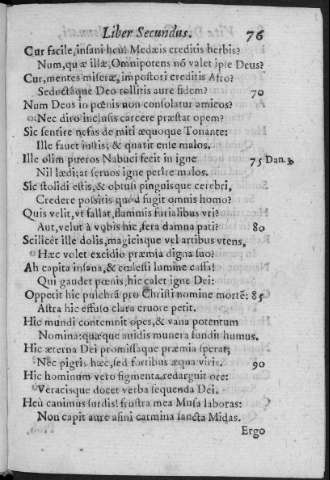 Liber Secundus. 76
Cur facile, insani heu! Medæis creditis herbis?
Num, quæ illæ, Omnipotens nō valet ipse Deus?
Cur, mentes miseræ, impostori creditis Afro?
Sed Deo tollitis aure fidem? 70
Num Deus in pœnis non consolatur amicos?
Nec diro inclusis carcere præstat opem?
Sic sentire nefas de miti æquoque Tonante:
Ille fauet iustis; & quatit ense malos.
Ille olim pueros Nabuci fecit in igne 75 Dan. 3.
Nil lædi: at seruos igne perire malos.
Sic stolidi estis, & obtusi pinguisque cerebri,
Credere possitis quod fugit omnis homo?
Quis velit, vt fallat, flammis furialibus vri?
Aut, velut à vobis hic, fera damna pati? 80
Scilicet ille dolis, magicisque vel artibus vtens,
Hæc volet excidio præmia digna suo?
Ah capita insana, & cœlesti lumine cassa!
Qui gaudet pœnis, hic calet igne Dei:
Oppetit hic pulchrā pro Christi nomine mortē: 85
Astra hic effuso clara cruore petit.
Hic mundi contemnit opes, & vana potentum
Nomina: quæque auidis munera fundit humus.
Hic æterna Dei promissaque præmia sperat;
Nec pigris hæc, sed fortibus æqua viris. 90
Hic hominum vero figmenta redarguit ore:
Veracisque docet verba sequenda Dei.
Heù canimus surdis! frustra mea Musa laboras:
Non capit aure asini carmina sancta Midas.
Ergo